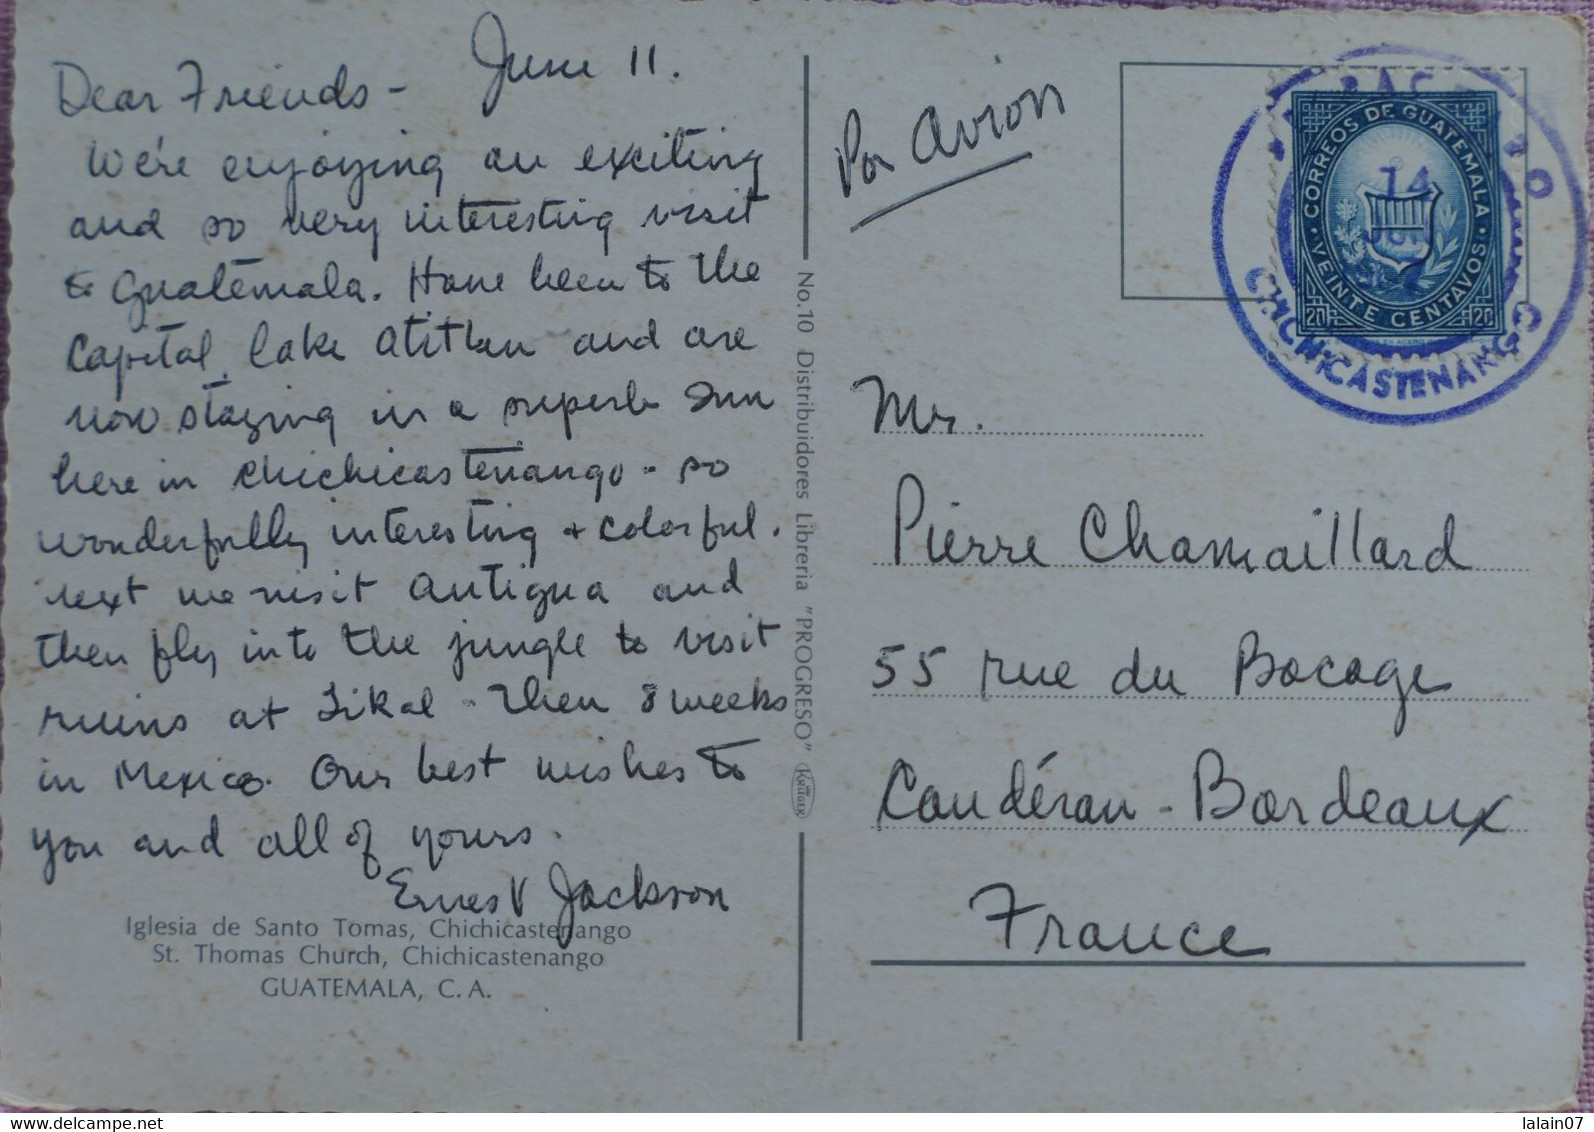 June 11.
Dear Friends -
We're enjoying an exciting
and so very interesting visit
to Guatemala. Have been to the
Capital, Lake Atitlan and are
now staying in a superb Inn
here in Chichicastenango - so
wonderfully interesting + colorful.
Next we visit Antigua and
then fly into the jungle to visit
ruins at Tikal - Then 8 weeks
in Mexico. Our best wishes to
you and all of yours.
Ernest Jackson
Iglesia de Santo Tomas, Chichicastenango
St. Thomas Church, Chichicastenango
GUATEMALA, C. A.
No. 10 Distribuidores Libreria "PROGRESO"
KRUGER
Par Avion
CORREOS DE GUATEMALA
VEINTE CENTAVOS
20 20
14
CHICHICASTENANGO
Mr.
Pierre Chamaillard
55 rue du Bocage
Caudéran - Bordeaux
France
www.delcampe.net
lalain07